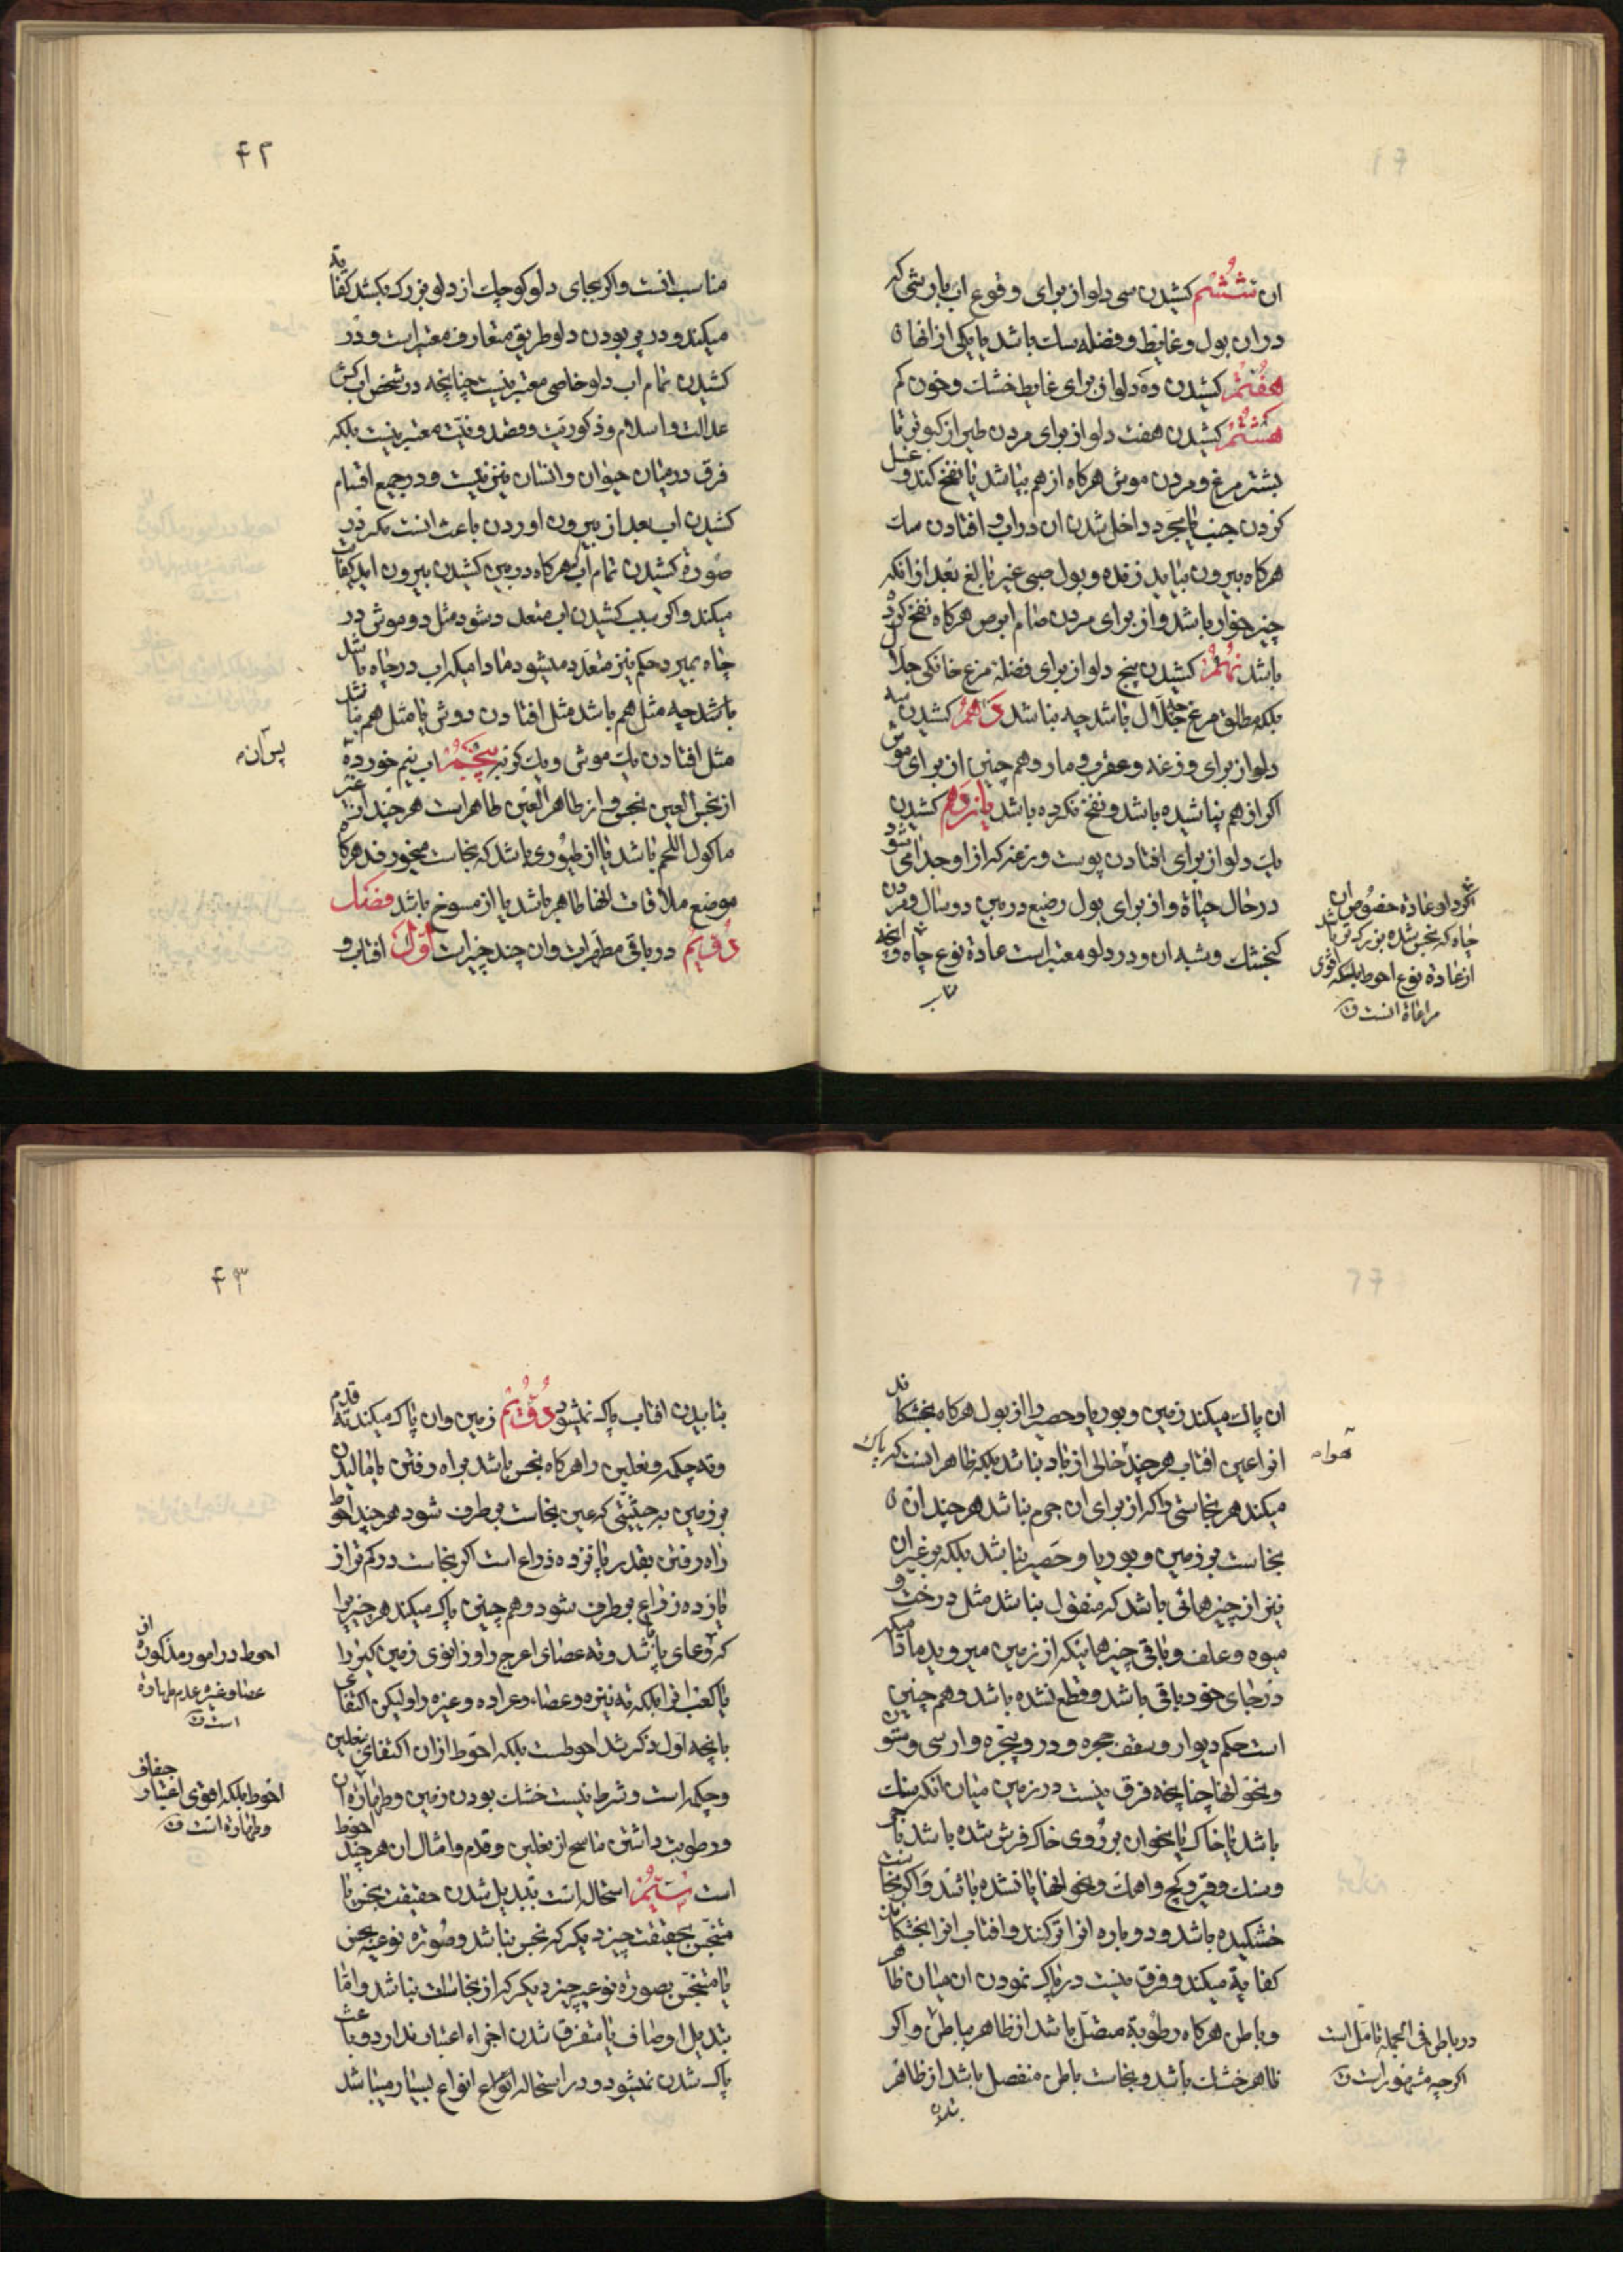 ان ششم کشیدن سی دلو از برای وقوع اب بارشی که
در ان بول و غایط و فضله سك باشد یا یکی از انها ه
هفتم کشیدن ده دلو از برای غایط خشك و خون کم
هشتم کشیدن هفت دلو از برای مردن طیر از کبوتر تا
بشتر مرغ و مردن موش هرکاه از هم بپاشد یا نفخ کند و غسل
کردن جنب یا بمجرد داخل شدن ان در اب و افتادن سك
هرکاه بیرون بیاید زنده و بول صبی غیر بالغ بعد از انکه
چیز خوار باشد و از برای مردن سام ابرص هرکاه نفخ کرده
باشد نهم کشیدن پنج دلو از برای فضلهٔ مرغ خانکی جلال
بلکه مطلق مرغ چه جلال باشد چه نباشد دهم کشیدن سه
دلو از برای وزغه و عقرب و مار و هم چنین از برای موش
اکر از هم نپاشیده باشد و نفخ نکرده باشد یازدهم کشیدن
یك دلو از برای افتادن پوست وزغه که از او جدا می شود
در حال حیاة و از برای بول رضیع در بین دو سال و مردن
کنجشك و شبه ان و در دلو معتبر است عادة نوع چاه و انچه
مناسب
اکر دلو عادة خصوص ان
چاه که نجس شده بزرکتر باشد
از عادة نوع احوط بلکه اقوی
مراعاة انست ن
۴۲
مناسب انست و اکر بجای دلو کوچك از دلو بزرك بکشد کفایة
میکند و در پر بودن دلو طریق متعارف معتبر است و در
کشیدن تمام اب دلو خاصی معتبر نیست چنانچه در شخص اب کش
عدالت و اسلام و ذکوریت و قصد و نیت معتبر نیست بلکه
فرق در میان حیوان و انسان نیز نیست و در جمیع اقسام
کشیدن اب بعد از بیرون اوردن باعث انست مکر در
صورة کشیدن تمام اب که هرکاه در بین کشیدن بیرون اید کفایت
میکند و اکر سبب کشیدن اب متعدد شود مثل دو موش در
چاه بمیرد حکم نیز متعدد میشود مادامیکه اب در چاه باشد
باشد چه مثل هم باشد مثل افتادن دو موش یا مثل هم نباشد
مثل افتادن یك موش و یك کربه پنجم اب نیم خورده
از نجس العین نجس و از طاهر العین طاهر است هر چند از غیر
ماکول اللحم باشد یا از طیوری باشد که نجاست میخورند هرکاه
موضع ملاقات انها طاهر باشد یا از مسوخ باشد فصل
دویم در باقی مطهرات و ان چند چیز است اول افتاب و
پس ان
ان پاك میکند زمین و بوریا و حصیر را از بول هرکاه بخشکاند
انرا عین افتاب هر چند خالی از باد نباشد بلکه ظاهر انست که پاك
میکند هر نجاستی را که از برای ان جرم نباشد هر چند ان ه
نجاست بر زمین و بوریا و حصیر نباشد بلکه بر غیر ان
نیز از چیزهائی باشد که منقول نباشد مثل درخت و
میوه و علف و باقی چیزهائیکه از زمین میروید مادامیکه
در جای خود باقی باشد و قطع نشده باشد و هم چنین
است حکم دیوار و سقف حجره و در و پنجره و ارسی و ستون
و نحو انها چنانچه فرق نیست در زمین میان انکه سنك
باشد یا خاك یا نحو ان بر روی خاك فرش شده باشد باجر
و سنك و قیر و کچ و اهك و نحو انها یا نشده باشد و اکر نجاست
خشکیده باشد و دوباره انرا تر کنند و افتاب انرا بخشکاند
کفایة میکند و فرق نیست در پاك نمودن ان میان ظاهر
و باطن هرکاه رطوبة متصل باشد از ظاهر بباطن و اکر
ظاهر خشك باشد و نجاست باطن منفصل باشد از ظاهر
هوا
در باطن فی الجمله تامل است
اکر چه مشهور است ن
۴۳
بتابیدن افتاب پاك نمیشود دویم زمین و ان پاك میکند ته قدم
و ته چکمه و نعلین را هرکاه نجس باشد براه رفتن یا مالیدن
بر زمین به حیثیتی که عین نجاست بر طرف شود هر چند احوط
راه رفتن بقدر پانزده ذراع است اکر نجاست در کمتر از
پانزده ذراع بر طرف شود و هم چنین پاك میکند هر چیز را
که وعای پا باشد و ته عصای اعرج را و زانوی زمین کیر را
یا کعب انرا بلکه ته نیزه و عصا و عراده و غیره را و لیکن اکتفا
بانچه اول ذکر شد احوطست بلکه احوط از ان اکتفای نعلین
و چکمه است و شرط نیست خشك بودن زمین و طهارة ان
و رطوبت داشتن ماسح از نعلین و قدم و امثال ان هر چند احوط
است سیم استحاله است تبدیل شدن حقیقت نجس یا
متنجس بحقیقت چیز دیکر که نجس نباشد و صورة نوعیه نجس
یا متنجس بصورة نوعیه چیز دیکر که از نجاسات نباشد و اما
تبدیل اوصاف یا متفرق شدن اجزاء اعتبار ندارد و باعث
پاك شدن نمیشود و در استحاله انواع بسیار میباشد
احوط در امور مذکوره از
عصا و غیره عدم طهارة
است ن
احوط بلکه اقوی اعتبار جفاف
و طهارة است ن